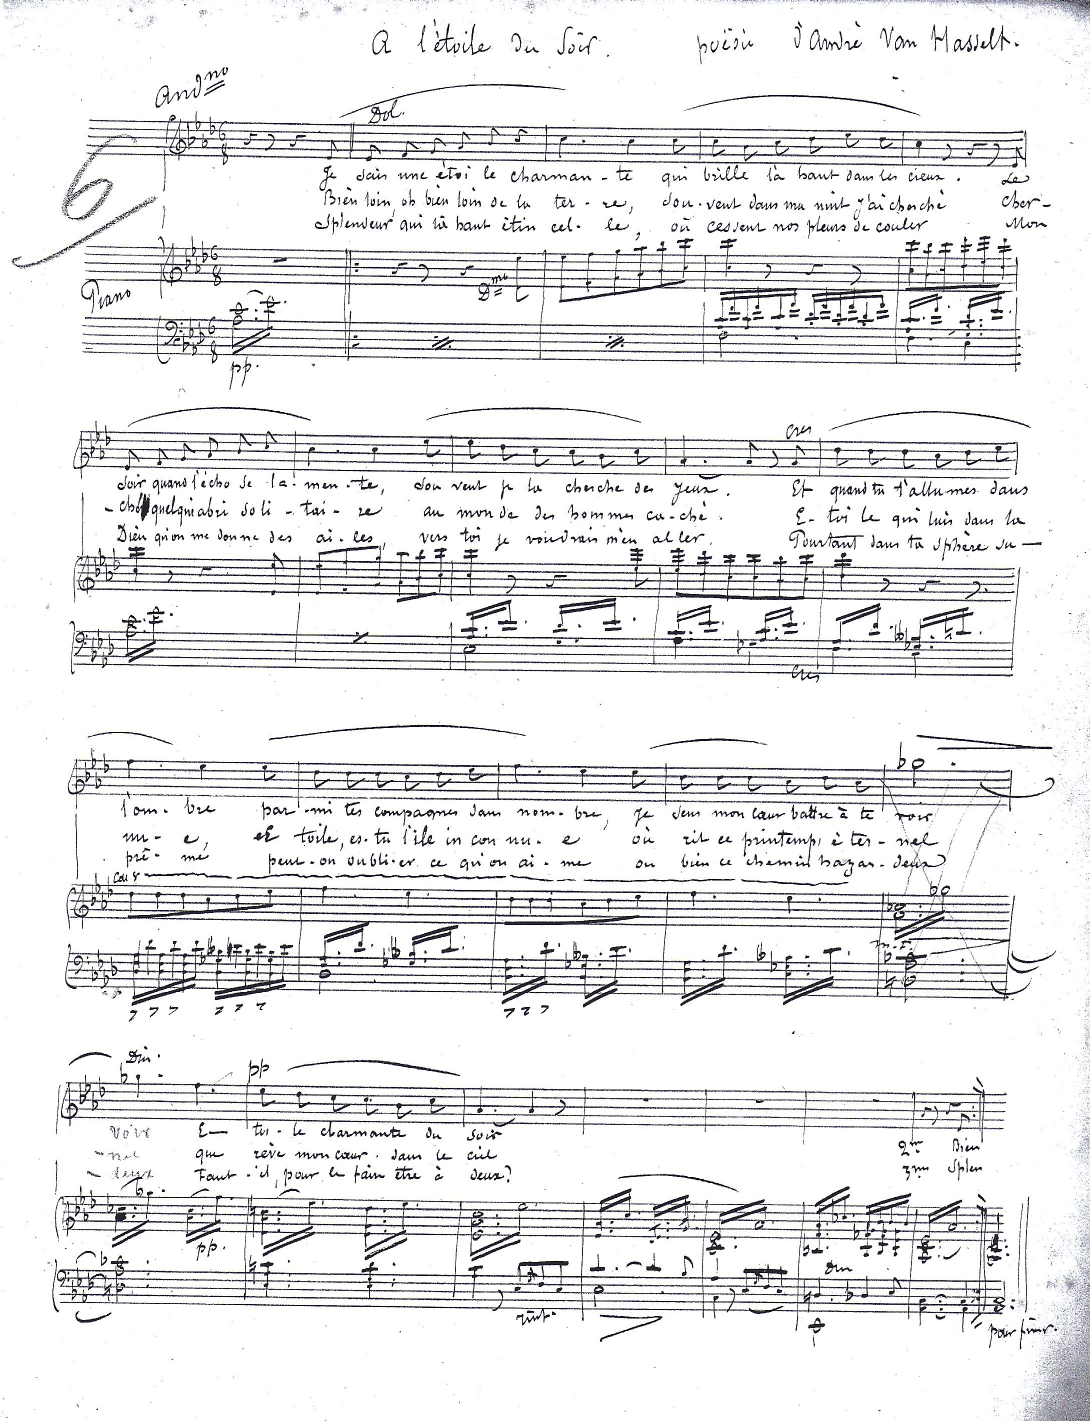 A l'étoile du Soir. poësie d'André Van Hasselt.
And^no
6
Dol.
Je sais une étoi le charman - te qui brille là haut dans les cieux. Le
Bien loin oh bien loin de la ter - re, Sou - vent dans ma nuit j'ai cherché Cher -
Splendeur qui là haut étin cel - le, où cessent nos pleurs de couler Mon
Piano
D^mo
pp.
cres
Soir quand l'écho se la - men - te, Sou vent je la cherche des yeux. Et quand tu t'allumes dans
- ché quelqu'abri so li - tai - re au mon de des hommes ca - ché. E - toi le qui luis dans la
Dieu qu'on me don ne des ai - les, vers toi je voudrais m'en al ler. Pourtant dans ta sphère su -
cres
l'om - bre par - mi tes compagnes sans nom - bre, je sens mon cœur battre à te voir
nu - e, E toile, es - tu l'île in con nu - e où rit ce printemps é ter - nel
prê - me peut - on oubli - er ce qu'on ai - me ou bien ce chemin hazar - deux
7 7 7 7 7 7 7 7 7
Dim.
pp
voir E - toi - le charmante du Soir
- nel que rêve mon cœur dans le ciel
- deux Faut - il, pour le faire être à deux?
2^me Bien
3^me Splen
pp.
dim
pour finir.